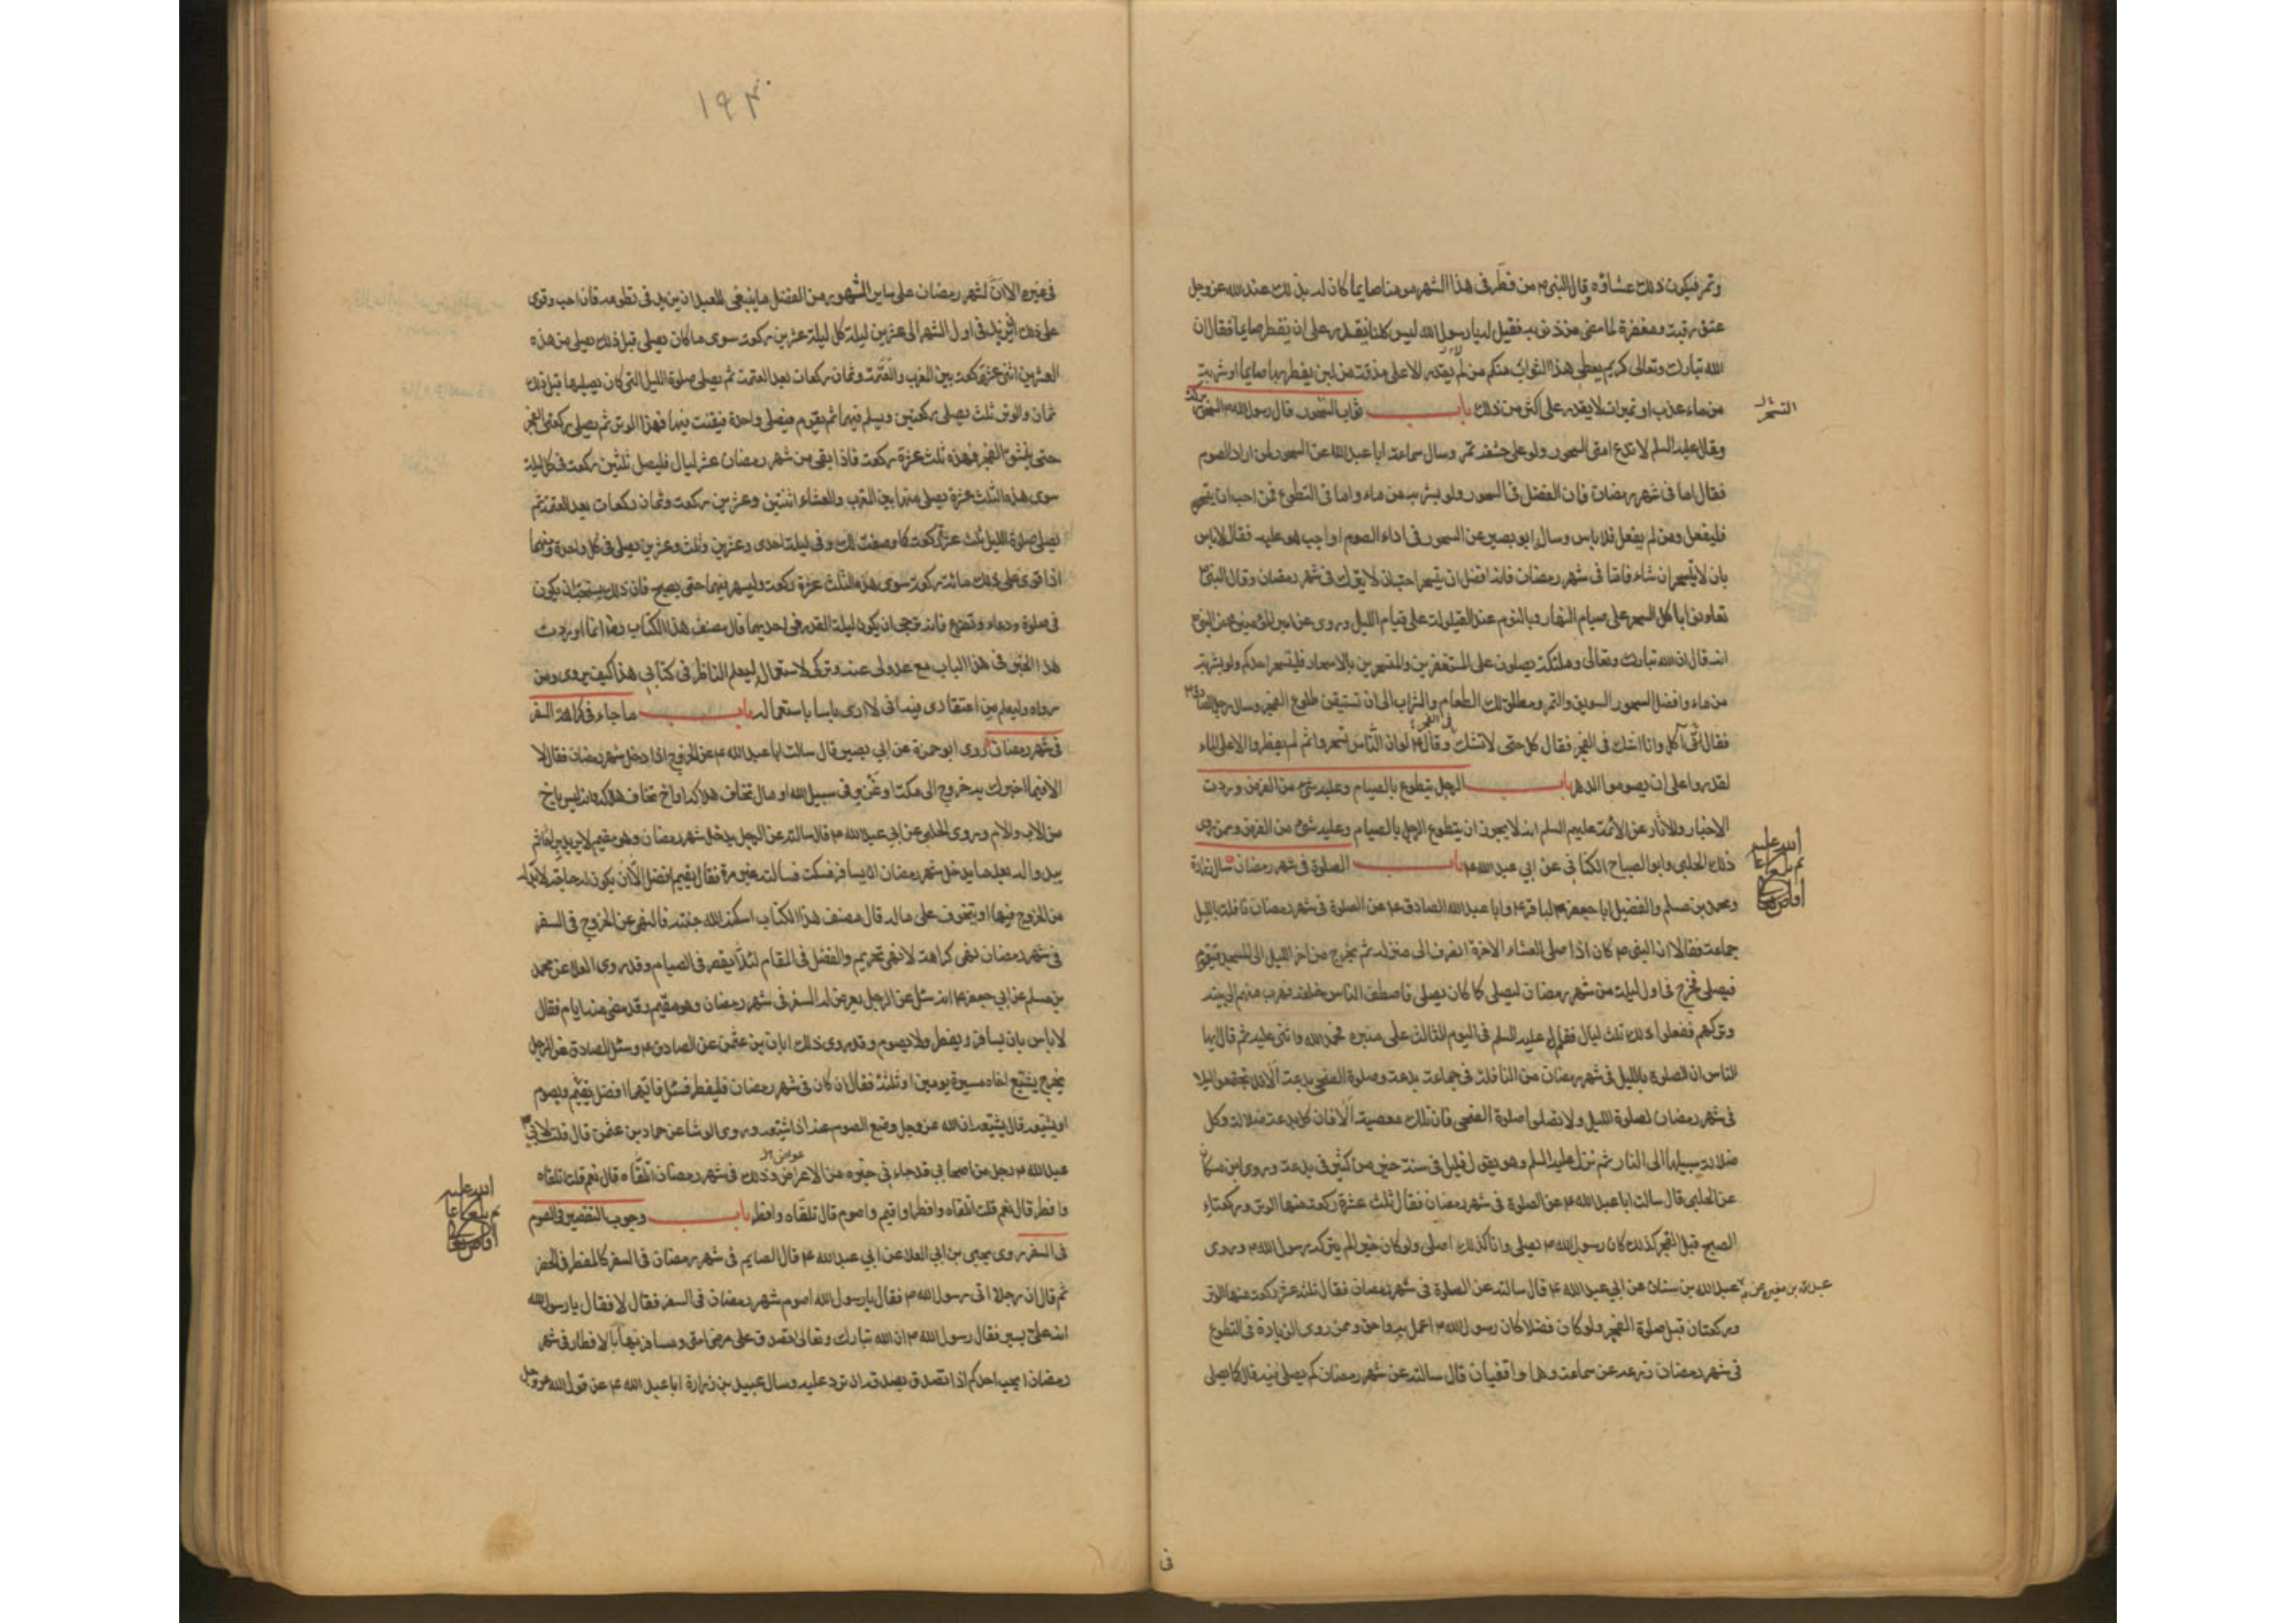 وتمر فيكون ذلك عشاؤه وقال النبي ص من فطر في هذا الشهر مومنا صايما كان له بذلك عند الله عز وجل
عتق رقبة ومغفرة لما مضى من ذنوبه فقيل له يا رسول الله ليس كلنا يقدر على ان يفطر صايما فقال ان
الله تبارك وتعالى كريم يعطي هذا الثواب منكم من لم يقدر الا على مذقة من لبن يفطر بها صايما او شربة
من ماء عذب او تميرات لا يقدر على اكثر من ذلك باب ثواب السحور قال رسول الله ص السحور بركة
وقال عليه السلم لا تدع امتي السحور ولو على حشفة تمر وسال سماعة ابا عبد الله عن السحور لمن اراد الصوم
فقال اما في شهر رمضان فان الفضل في السحور ولو بشربة من ماء واما في التطوع فمن احب ان يتسحر
فليفعل ومن لم يفعل فلا باس وسال ابو بصير عن السحور في اداء الصوم اواجب هو عليه فقال لا باس
بان لا يتسحر ان شاء فاما في شهر رمضان فانه افضل ان يتسحر احب ان لا يترك في شهر رمضان وقال النبي ص
تعاونوا باكل السحر على صيام النهار وبالنوم عند القيلولة على قيام الليل وروي عن امير المؤمنين ع عن النبي ص
انه قال ان الله تبارك وتعالى وملئكته يصلون على المستغفرين والمتسحرين بالاسحار فليتسحر احدكم ولو بشربة
من ماء وافضل السحور السويق والتمر ومطلق لك الطعام والشراب الى ان تستيقن طلوع الفجر وسال رجل الصادق ع
فقال اني آكل وانا اشك في الفجر فقال كل حتى لا تشك وقال ع لو ان الناس تسحروا ثم لم يفطروا الا على الماء
لقدروا على ان يصوموا الدهر باب الرجل يتطوع بالصيام وعليه شيء من الفرض وردت
الاخبار والاثار عن الائمة عليهم السلم انه لا يجوز ان يتطوع الرجل بالصيام وعليه شيء من الفرض وممن روى
ذلك الحلبي وابو الصباح الكناني عن ابي عبد الله ع باب الصلوة في شهر رمضان سال زرارة
ومحمد بن مسلم والفضيل ابا جعفر الباقر ع وابا عبد الله الصادق ع عن الصلوة في شهر رمضان نافلة بالليل
جماعة فقالا ان النبي ص كان اذا صلى العشاء الاخرة انصرف الى منزله ثم يخرج من اخر الليل الى المسجد فيقوم
فيصلي فخرج في اول ليلة من شهر رمضان ليصلي كما كان يصلي فاصطف الناس خلفه فهرب منهم الى بيته
وتركهم ففعلوا ذلك ثلث ليال فقام عليه السلم في اليوم الثالث على منبره فحمد الله واثنى عليه ثم قال ايها
الناس ان الصلوة بالليل في شهر رمضان من النافلة في جماعة بدعة وصلوة الضحى بدعة الا فلا تجتمعوا ليلا
في شهر رمضان لصلوة الليل ولا تصلوا صلوة الضحى فان تلك معصية الا فان كل بدعة ضلالة وكل
ضلالة سبيلها الى النار ثم نزل عليه السلم وهو يقول قليل في سنة خير من كثير في بدعة وروى ابن مسكان
عن الحلبي قال سالت ابا عبد الله ع عن الصلوة في شهر رمضان فقال ثلث عشرة ركعة منها الوتر وركعتا
الصبح قبل الفجر كذلك كان رسول الله ص يصلي وانا كذلك اصلي ولو كان خيرا لم يتركه رسول الله ص وروى
عبد الله بن مغيرة عن عبد الله بن سنان عن ابي عبد الله ع قال سالته عن الصلوة في شهر رمضان فقال ثلث عشر ركعة منها الوتر
وركعتان قبل صلوة الفجر ولو كان فضلا كان رسول الله ص اعمل به واحق وممن روى الزيادة في التطوع
في شهر رمضان زرعة عن سماعة وهما واقفيان قال سالته عن شهر رمضان كم يصلى فيه قال كما يصلى
في
١٩٣
في غيره الا ان لشهر رمضان على ساير الشهور من الفضل ما ينبغي للعبد ان يزيد في تطوعه فان احب وقوي
على ذلك ان يزيد في اول الشهر الى عشرين ليلة كل ليلة عشرين ركعة سوى ما كان يصلي قبل ذلك يصلي من هذه
العشرين اثنتي عشرة ركعة بين المغرب والعتمة وثمان ركعات بعد العتمة ثم يصلي صلوة الليل التي كان يصليها قبل ذلك
ثمان والوتر ثلث يصلي ركعتين ويسلم فيهما ثم يقوم فيصلي واحدة فيقنت فيها فهذا الوتر ثم يصلي ركعتي الفجر
حتى ينشق الفجر فهذه ثلث عشرة ركعة فاذا بقي من شهر رمضان عشر ليال فليصل ثلثين ركعة في كل ليلة
سوى هذه الثلث عشرة يصلي منها بين المغرب والعشاء اثنتين وعشرين ركعة وثمان ركعات بعد العتمة ثم
يصلي صلوة الليل ثلث عشرة ركعة كما وصفت لك وفي ليلة احدى وعشرين وثلث وعشرين يصلي في كل واحدة منهما
اذا قوي على ذلك مائة ركعة سوى هذه الثلث عشرة ركعة وليسهر فيهما حتى يصبح فان ذلك يستحب ان يكون
في صلوة ودعاء وتضرع فانه يرجى ان يكون ليلة القدر في احديهما قال مصنف هذا الكتاب ره انما اوردت
هذا الخبر في هذا الباب مع عدولي عنه وتركي لاستعماله ليعلم الناظر في كتابي هذا كيف يروى ومن
رواه وليعلم من اعتقادي فيه اني لا ارى باسا باستعماله باب ما جاء في كراهة السفر
في شهر رمضان روى ابو حمزة عن ابي بصير قال سالت ابا عبد الله ع عن الخروج اذا دخل شهر رمضان فقال لا
الا فيما اخبرك به خروج الى مكة او غزو في سبيل الله او مال تخاف هلاكه او اخ تخاف هلاكه وانه ليس باخ
من الاب والام وروى الحلبي عن ابي عبد الله ع قال سالته عن الرجل يدخل شهر رمضان وهو مقيم لا يريد براحا ثم
يبدو له بعد ما يدخل شهر رمضان ان يسافر فسكت فسالته غير مرة فقال يقيم افضل الا ان يكون له حاجة لا بد له
من الخروج فيها او يتخوف على ماله قال مصنف هذا الكتاب اسكنه الله جنته فالنهي عن الخروج في السفر
في شهر رمضان نهي كراهة لا نهي تحريم والفضل في المقام لئلا يقصر في الصيام وقد روى العلا عن محمد
بن مسلم عن ابي جعفر ع انه سئل عن الرجل يعرض له السفر في شهر رمضان وهو مقيم وقد مضى منه ايام فقال
لا باس بان يسافر ويفطر ولا يصوم وقد روى ذلك ابان بن عثمن عن الصادق ع وسئل الصادق عن الرجل
يخرج يشيع اخاه مسيرة يومين او ثلثة فقال ان كان في شهر رمضان فليفطر فسئل فايهما افضل يقيم ويصوم
او يشيعه قال يشيعه ان الله عز وجل وضع الصوم عنه اذا شيعه وروى الوشا عن حماد بن عثمن قال قلت لابي
عبد الله ع رجل من اصحابي قد جاءني خبره من الاعوض وذلك في شهر رمضان اتلقاه قال نعم قلت اتلقاه
وافطر قال نعم قلت اتلقاه وافطر او اقيم واصوم قال تلقاه وافطر باب وجوب التقصير في الصوم
في السفر روى يحيى بن ابي العلا عن ابي عبد الله ع قال الصايم في شهر رمضان في السفر كالمفطر في الحضر
ثم قال ان رجلا اتى رسول الله ص فقال يا رسول الله اصوم شهر رمضان في السفر فقال لا فقال يا رسول الله
انه علي يسير فقال رسول الله ص ان الله تبارك وتعالى تصدق على مرضى امتي ومسافريها بالافطار في شهر
رمضان ايحب احدكم اذا تصدق بصدقة ان ترد عليه وسال عبيد بن زرارة ابا عبد الله ع عن قول الله عز وجل